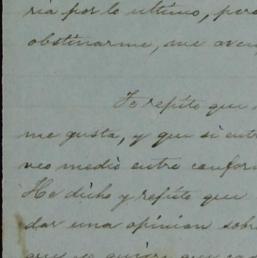 ria por lo ultimo, per
obstinarme, me aven
Yo repito que
me gusta, y que si entr
veo medio entre confor
He dicho y repito que
dar una opinion sobr
que yo quiera que